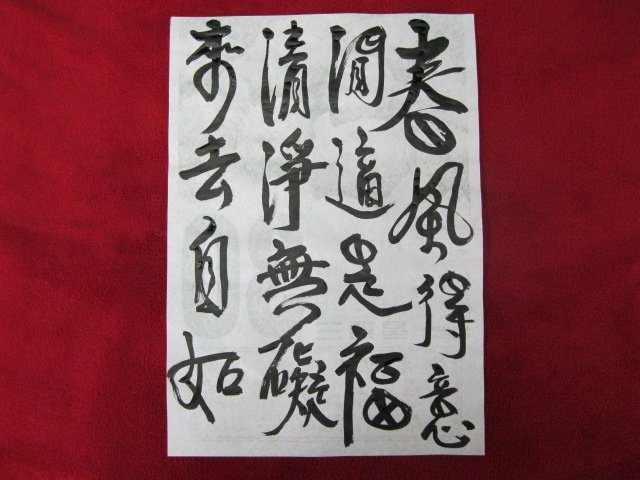 春風得意
閒適是福
清淨無礙
來去自如